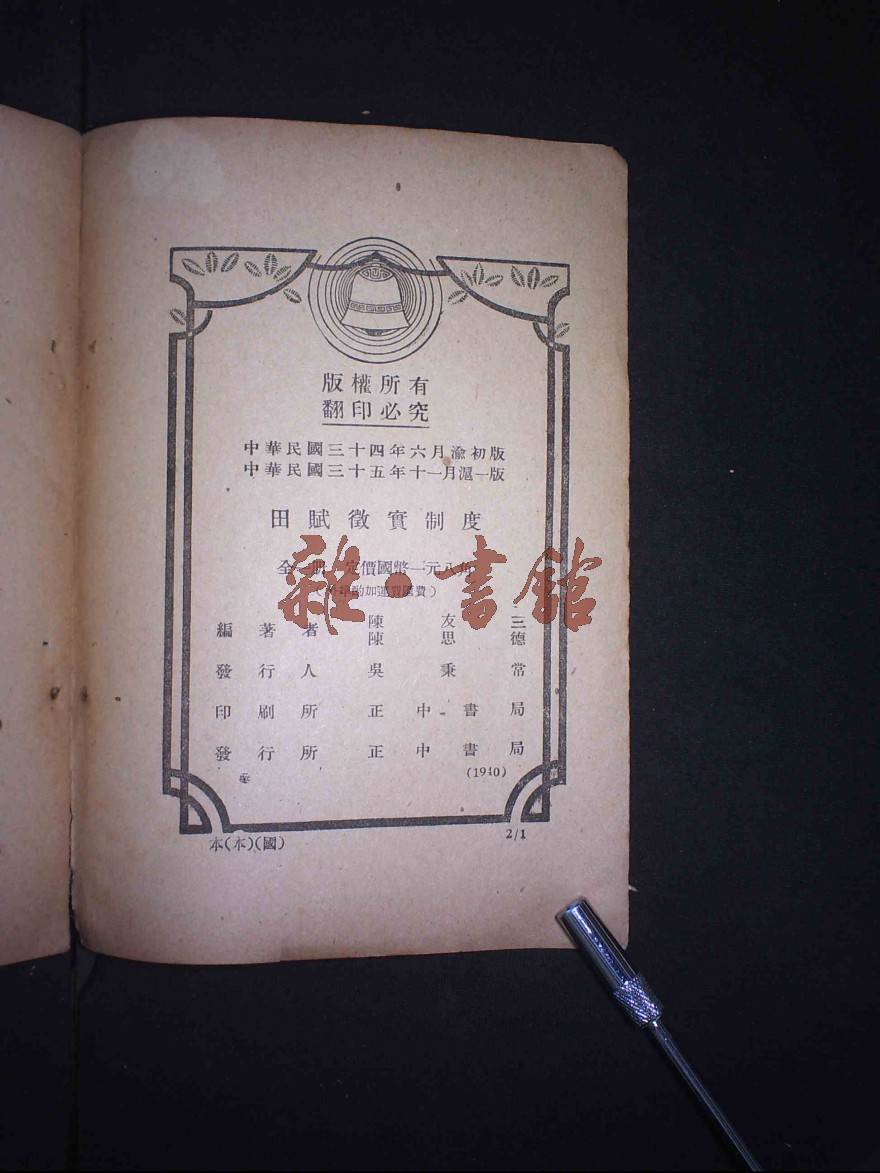 版權所有
翻印必究
中華民國三十四年六月渝初版
中華民國三十五年十一月滬一版
田賦徵實制度
全一册 定價國幣一元八角
(外埠酌加運費匯費)
雜·書館
編著者 陳友三
陳思德
發行人 吳秉常
印刷所 正中書局
發行所 正中書局
(1940)
本(本)(國) 2/1